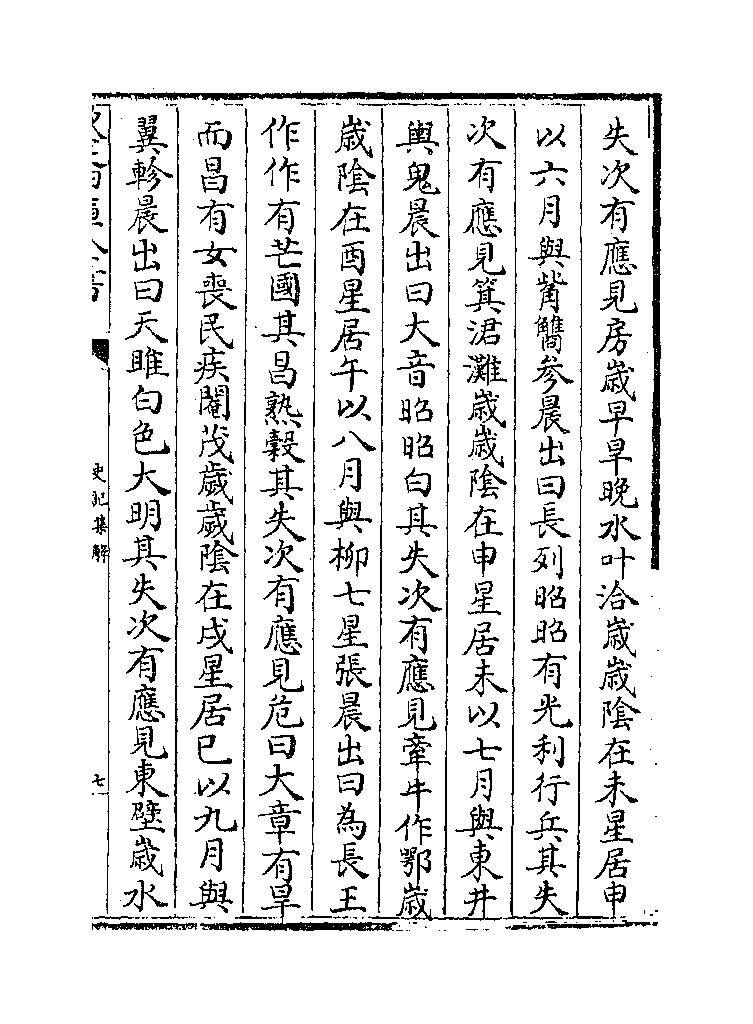 失次有應見房歲早旱晚水叶洽歲歲陰在未星居申
以六月與觜觿參晨出曰長列昭昭有光利行兵其失
次有應見箕涒灘歲歲陰在申星居未以七月與東井
輿鬼晨出曰大音昭昭白其失次有應見牽牛作鄂歲
歲陰在酉星居午以八月與柳七星張晨出曰為長王
作作有芒國其昌熟穀其失次有應見危曰大章有旱
而昌有女喪民疾閹茂歲歲陰在戌星居巳以九月與
翼軫晨出曰天雎白色大明其失次有應見東壁歲水
史記集解
七